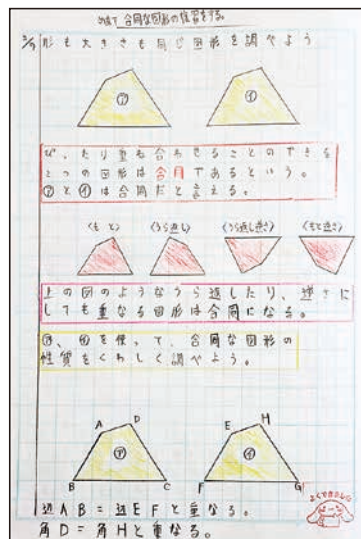 合同な図形の復習をする。
形も大きさも同じ図形を調べよう
㋐ ㋑
ぴったり重ね合わせることのできる
2つの図形は合同であるという。
㋐と㋑は合同だと言える。
(もと) (うら返し) (うら返し逆さ) (もと逆さ)
上の図のようなうら返したり、逆さに
しても重なる図形は合同になる。
㋐、㋑を使って、合同な図形の
性質をくわしく調べよう。
A D E H
㋐ ㋑
B C F G
辺AB=辺EFと重なる。
角D=角Hと重なる。